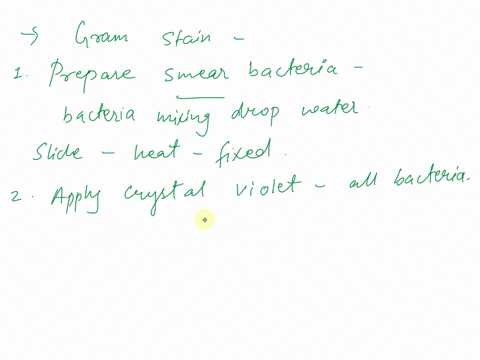 → Gram stain -
1. Prepare smear bacteria -
bacteria mixing drop water.
Slide - heat - fixed.
2. Apply crystal violet - all bacteria.